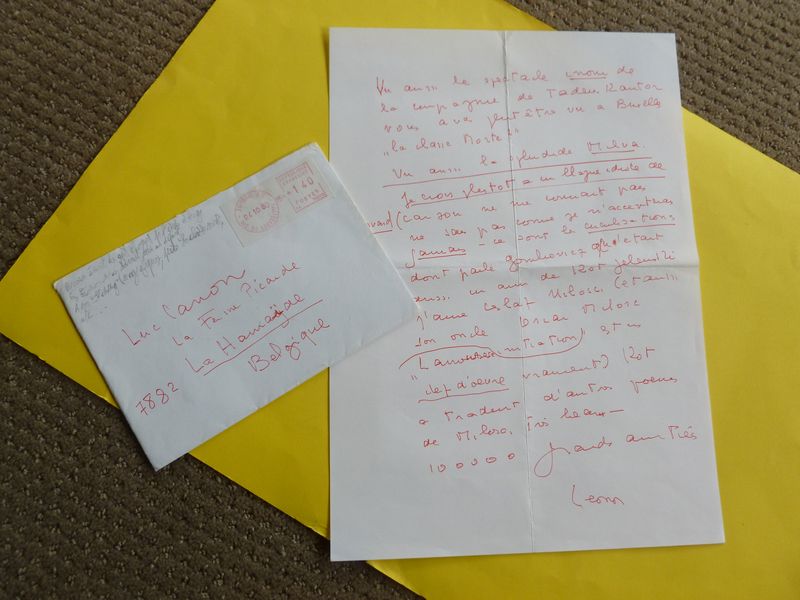 1.40
POSTES
04.10.80
Luc Canon
La Ferme Picarde
La Hamaïde
7882 Belgique
Vu aussi le spectacle inoui de
la compagnie de Tadeus Kantor
vous avez peut être vu a Bruxelles
"la classe Morte"
Vu aussi la splendide Milva.
Je crois plutot a un blague idiote de
(car on ne me connait pas
ne sais pas comme je n'accepterais
jamais - ce sont les cuculisations
dont parle Gombrovicz qui etant
aussi un ami de Kot Jelenski
j'aime Ceslav Milosc (et aussi
son oncle Oscar Milosc
"L'amoureuse initiation" est un
chef d'oeuvre vraiment) Kot
a traduit d'autres poemes
de Milosc. très beau -
100000 grands amitiés
Leonor